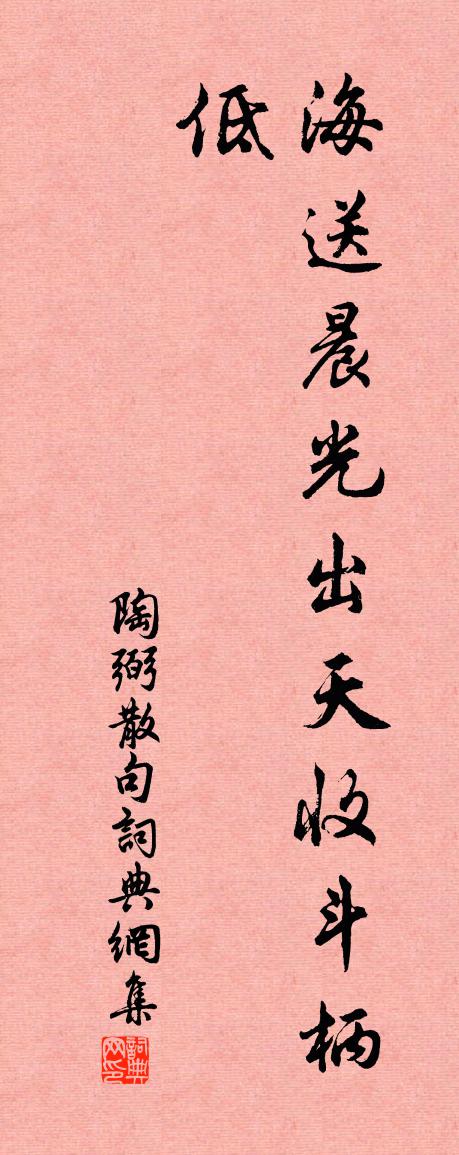 海送晨光出天收斗柄
低
陶弼散句詞典網集
詞典
网印